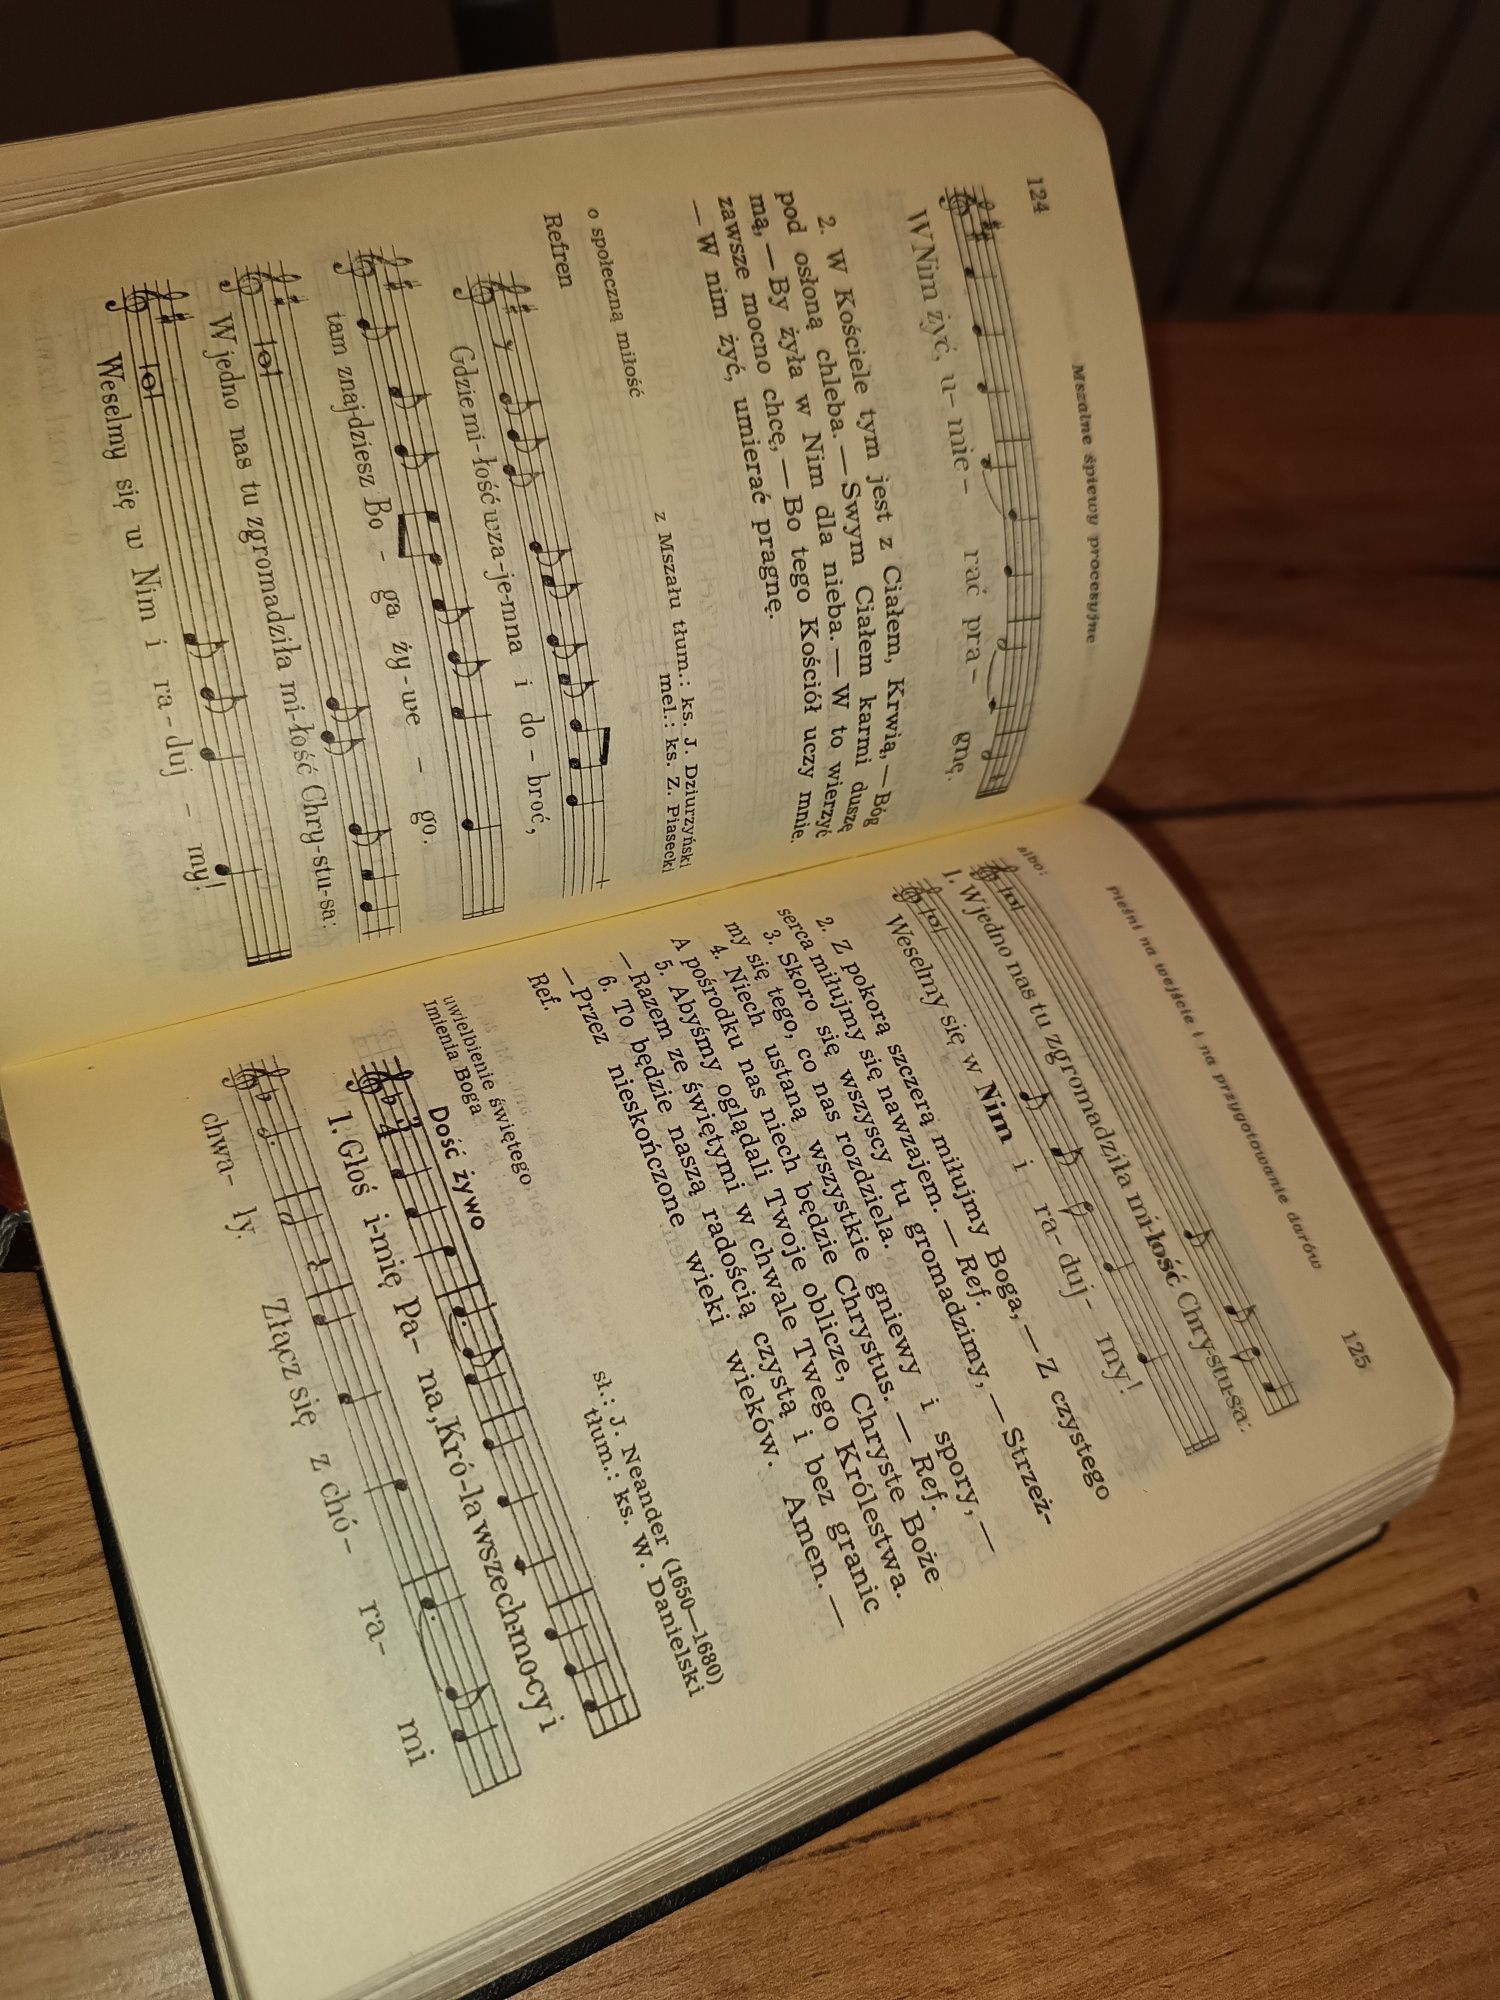 124
Mszalne śpiewy procesyjne
W Nim żyć, u- mie- rać pra- gnę.
2. W Kościele tym jest z Ciałem, Krwią, — Bóg
pod osłoną chleba. — Swym Ciałem karmi duszę
mą, — By żyła w Nim dla nieba. — W to wierzyć
zawsze mocno chcę, — Bo tego Kościół uczy mnie.
— W nim żyć, umierać pragnę.
z Mszału tłum.: ks. J. Dziurzyński
mel.: ks. Z. Piasecki
o społeczną miłość
Refren
Gdzie mi-łość wza-je-mna i do-broć,
tam znaj-dziesz Bo - ga ży-we - go.
W jedno nas tu zgromadziła mi-łość Chry-stu-sa:
Weselmy się w Nim i ra-duj - my!
Pieśni na wejście i na przygotowanie darów
125
albo:
1. W jedno nas tu zgromadziła mi-łość Chry-stu-sa:
Weselmy się w Nim i ra-duj- my!
2. Z pokorą szczerą miłujmy Boga, — Z czystego
serca miłujmy się nawzajem. — Ref.
3. Skoro się wszyscy tu gromadzimy, — Strzeż-
my się tego, co nas rozdziela.
4. Niech ustaną wszystkie gniewy i spory, —
A pośrodku nas niech będzie Chrystus. — Ref.
5. Abyśmy oglądali Twoje oblicze, Chryste Boże
— Razem ze świętymi w chwale Twego Królestwa.
6. To będzie naszą radością czystą i bez granic
— Przez nieskończone wieki wieków. Amen. —
Ref.
sł.: J. Neander (1650—1680)
tłum.: ks. W. Danielski
uwielbienie świętego
Imienia Boga
Dość żywo
1. Głoś i-mię Pa- na, Kró-la wszech-mo-cy i
chwa- ły. Złącz się z chó- ra- mi